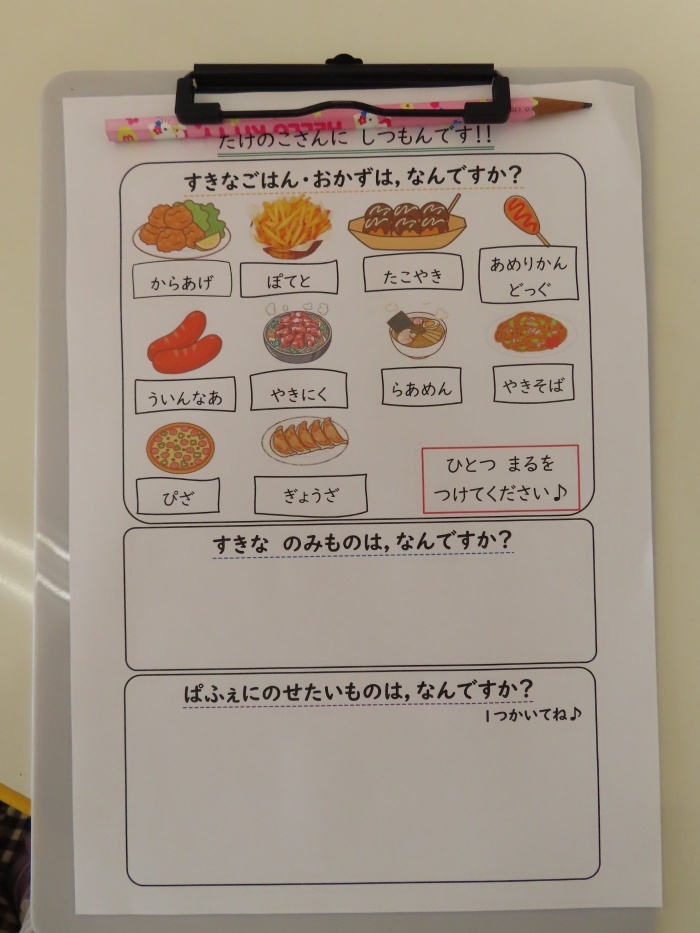 HELLO KITTY
たけのこさんに しつもんです!!
すきなごはん・おかずは,なんですか?
からあげ
ぽてと
たこやき
あめりかん
どっぐ
ういんなあ
やきにく
らあめん
やきそば
ぴざ
ぎょうざ
ひとつ まるを
つけてください♪
すきな のみものは,なんですか?
ぱふぇにのせたいものは,なんですか?
1つかいてね♪